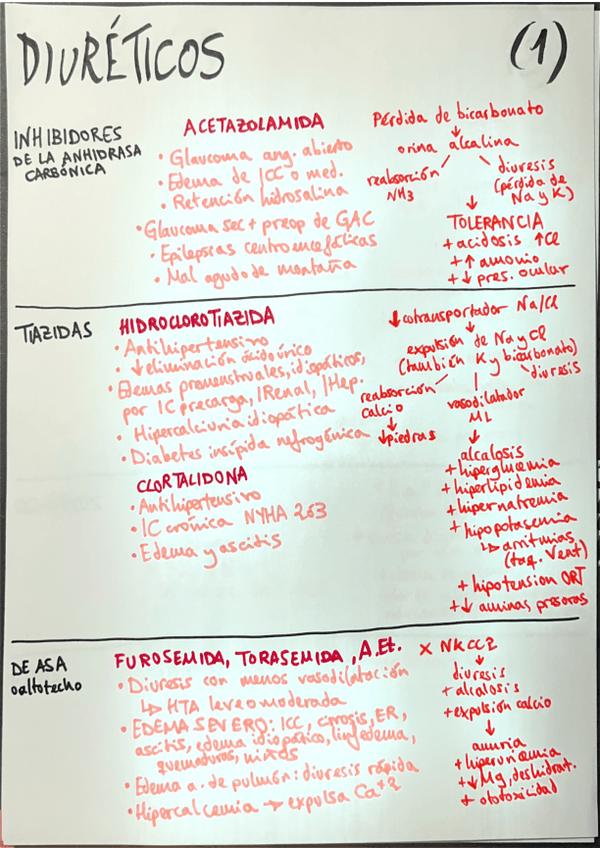 DIURÉTICOS
(1)
INHIBIDORES
DE LA ANHIDRASA
CARBÓNICA
ACETAZOLAMIDA
• Glaucoma ang. abierto
• Edema de ICC o med.
• Retención hidrosalina
• Glaucoma sec + preop de GAC
• Epilepsias centroencefálicas
• Mal agudo de montaña
Pérdida de bicarbonato
↓
orina alcalina
reabsorción
NH3
diuresis
(pérdida de
Na y K)
↓
TOLERANCIA
+ acidosis ↑Cl
+ ↑ amonio
+ ↓ pres. ocular
TIAZIDAS
HIDROCLOROTIAZIDA
• Antihipertensivo
• ↓ eliminación ácido úrico
• Edemas premenstruales, idiopáticos,
por IC precarga, IRenal, IHep.
• Hipercalciuria idiopática
• Diabetes insípida nefrogénica
CLORTALIDONA
• Antihipertensivo
• IC crónica NYHA 2 ó 3
• Edema y ascitis
↓ cotransportador Na/Cl
↓
expulsión de Na y Cl
(también K y bicarbonato)
reabsorción
calcio
↓
↓piedras
vasodilatador
ML
diuresis
↓
alcalosis
+ hiperglucemia
+ hiperlipidemia
+ hipernatremia
+ hipopotasemia
↳ arritmias
(taq. Vent)
+ hipotension ORT
+ ↓ aminas presoras
DE ASA
o alto techo
FUROSEMIDA, TORASEMIDA, A.Et.
• Diuresis con menos vasodilatación
↳ HTA leve o moderada
• EDEMA SEVERO: ICC, cirrosis, ER,
ascitis, edema idiopático, linfedema,
quemaduras, mixtos
• Edema a. de pulmón: diuresis rápida
• Hipercalcemia → expulsa Ca+2
X NKCC2
↓
diuresis
+ alcalosis
+ expulsión calcio
↓
anuria
+ hiperuricemia
+ ↓ Mg, deshidrat.
+ ototoxicidad